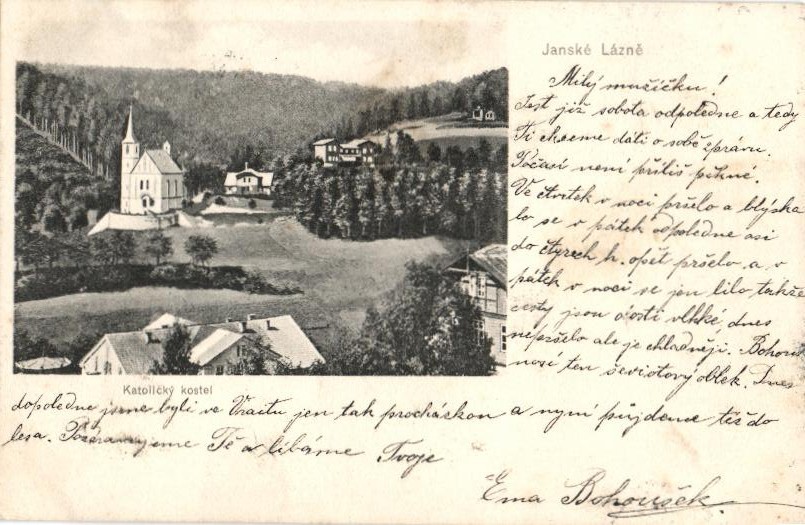 Janské Lázně
Milý mužíčku!
Jest již sobota odpoledne a tedy
Ti chceme dáti o sobě zprávu.
Počasí není příliš pěkné.
Ve čtvrtek v noci pršelo a blýska
lo se v pátek odpoledne asi
do čtyrech h. opět pršelo a v
pátek v noci se jen lilo takže
cesty jsou dosti vlhké, dnes
nepršelo ale je chladněji. Bohouš
nosí ten ševiotový oblek. Dnes
Katolický kostel
dopoledne jsme byli ve jen tak procházkou a nyní půjdeme též do
lesa. Pozdravujeme Tě a líbáme Tvoje
Ema Bohoušek